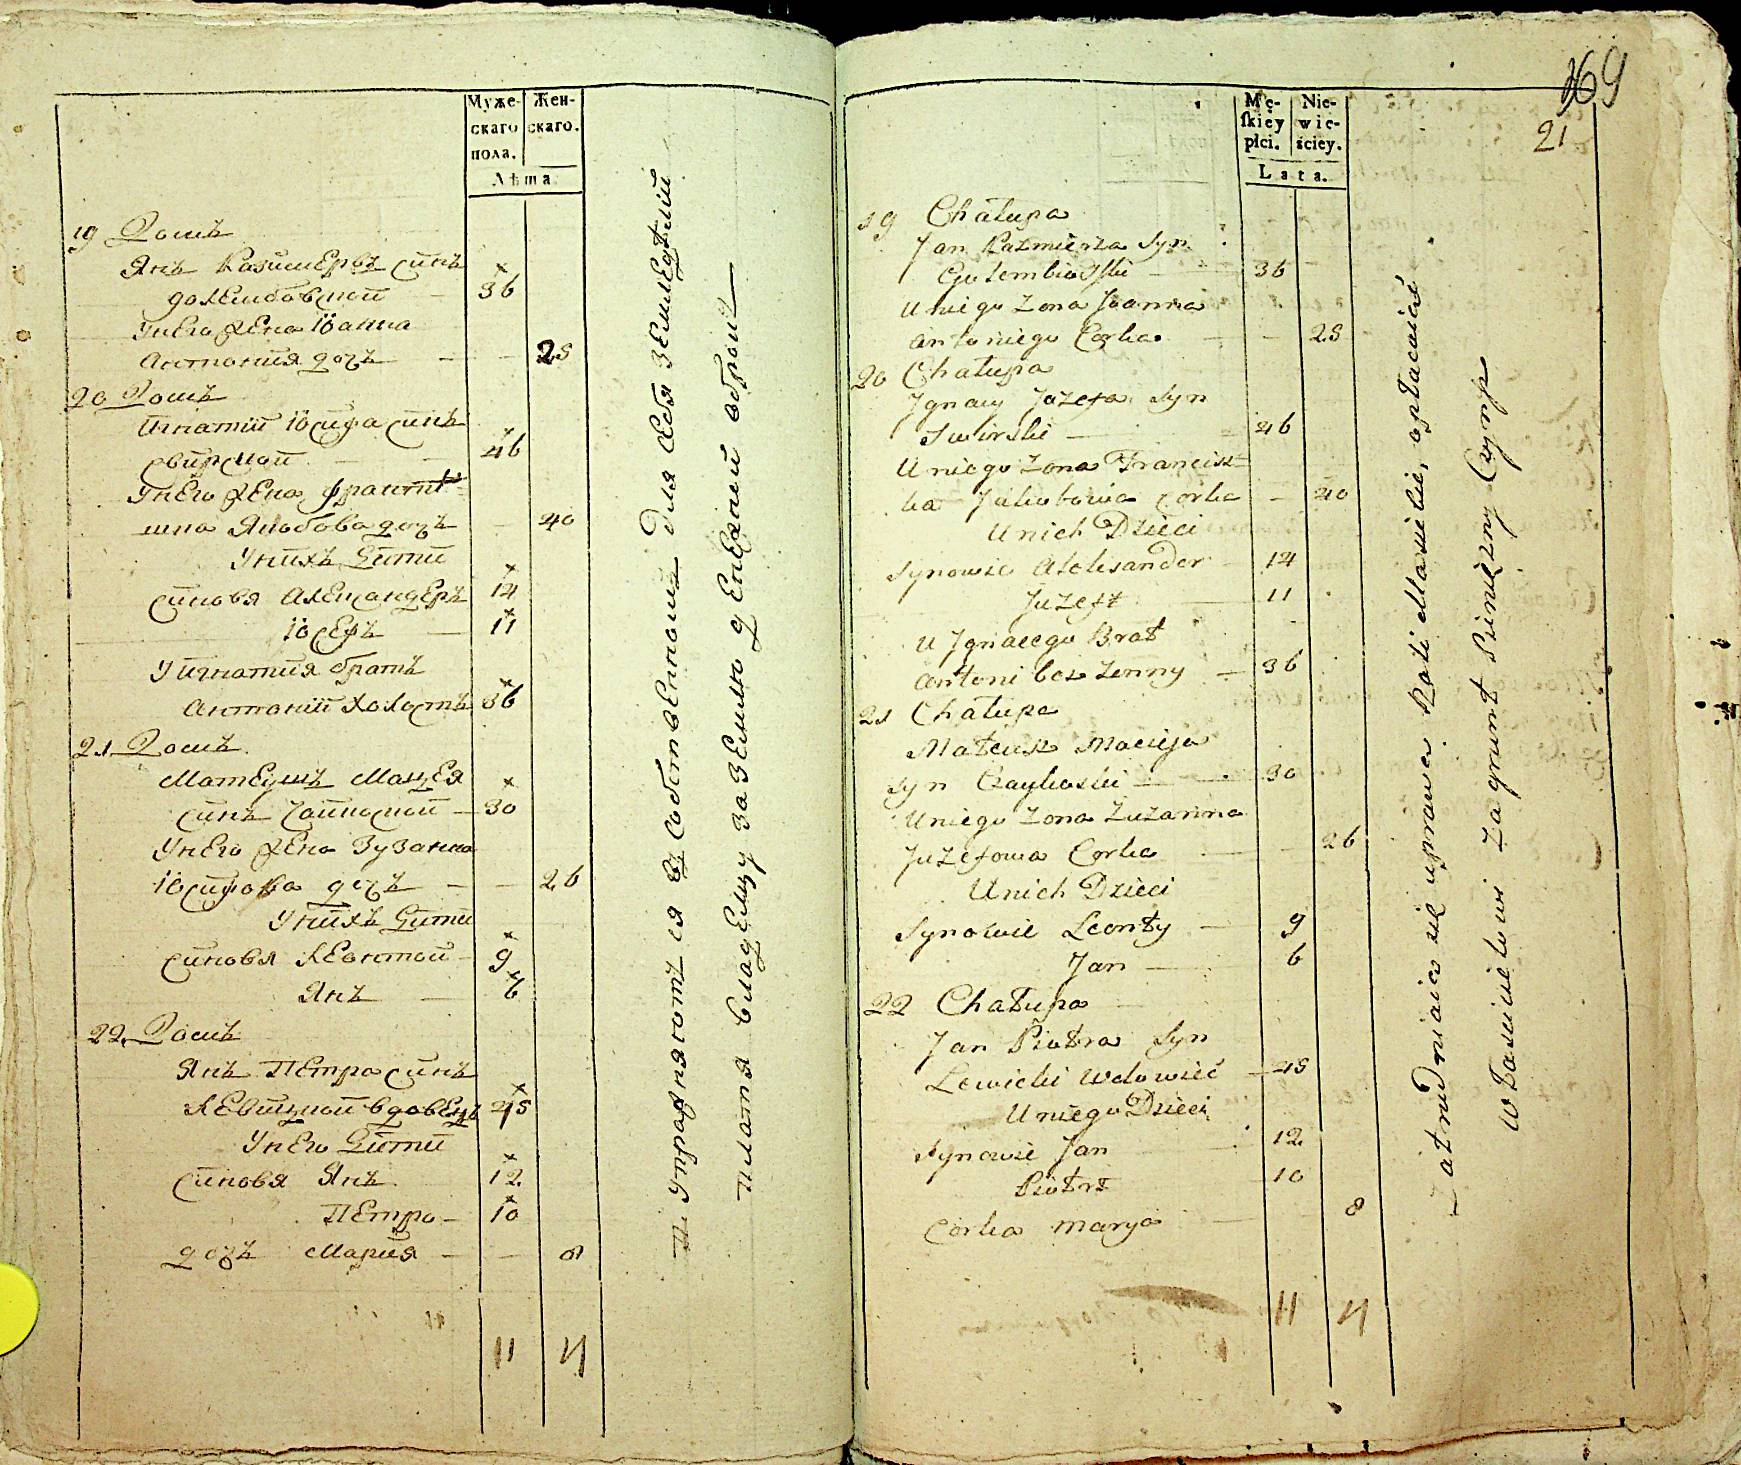 Муже-
скаго
пола.
Жен-
скаго.
Лѣта.
19 Домъ
Янъ Казимеръ синъ
голембовской - 36
Унего жена Iоанна
Антония дочъ - - 25
20 Домъ
Игнатий Iосифа синъ
свирской - - 46
Унего жена Францѣ-
шка Якобова дочъ - 40
Унихъ Дѣти
синовя Александеръ 14
Iосефъ - 11
У Игнатия братъ
Антоний холостъ 36
21 Домъ
Матеушъ Мацея
синъ Чайковской - 30
Унего жена Зузанна
Iосифова дочъ - - 26
Унихъ Дѣти
синовя Леонтой - 9
Янъ - 6
22 Домъ
Янъ Петра синъ
Левицкой вдовецъ 45
Унего Дѣти
синовя Янъ 12
Петро - 10
дочъ Мария - - 8
11 4
Упражняются въ собственной для себя земледѣлии
платя владельцу за землю денежной оброкъ
169
21
Mę-
skiey
płci.
Nie-
wie-
ściey.
Lata.
19 Chałupa
Jan Kazmierza Syn
Gołembiowski - 36
U niego Zona Joanna
Antoniego Corka - - 25
20 Chałupa
Jgnacy Jozefa Syn
Swirski - 46
U niego Zona Francisz-
ka Jakubowa Corka - 40
U nich Dzieci
Synowie Aleksander - 14
Juzeff - 11
U Jgnacego Brat
Antoni bez Zonny - 36
21 Chałupa
Mateusz Macieja
Syn Czaykoski - 30
U niego Zona Zuzanna
Juzefowa Corka - - 26
U nich Dzieci
Synowie Leonty - 9
Jan - 6
22 Chałupa
Jan Piotra Syn
Lewicki Wdowieć - 45
U niego Dzieci
Synowie Jan 12
Piotr 10
Corka Marya - 8
11 4
Zatrudniaią się uprawą Roli Maiętku, opłacaiąc
właścicielowi za grunt Pieniężny Czynsz